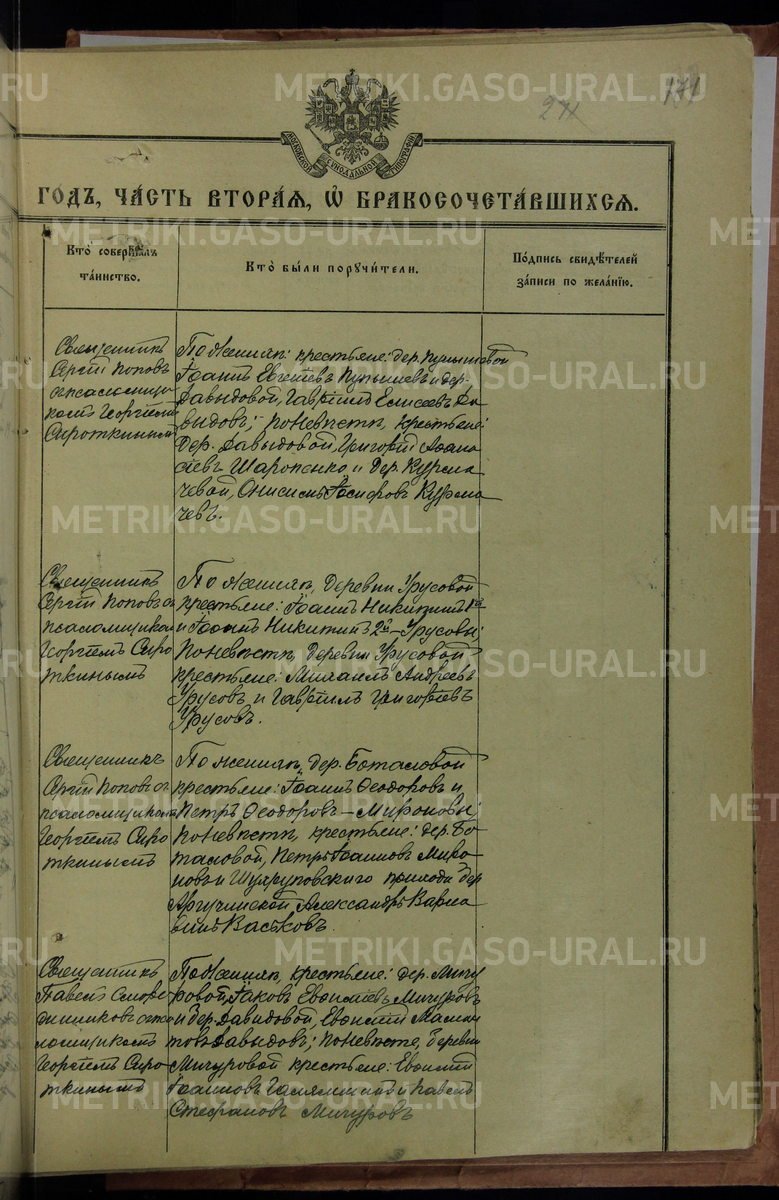 METRIKI.GASO-URAL.RU
271
171
МОСКОВСКОЙ СѴНОДАЛЬНОЙ ТИПОГРАФІИ
ГОДЪ, ЧАСТЬ ВТОРАЯ, Ѡ БРАКОСОЧЕТАВШИХСЯ.
Кто совершалъ таинство.
Кто были поручители.
Подпись свидѣтелей записи по желанію.
Священникъ
Сергій Поповъ
съ псаломщи-
комъ Георгіемъ
Сироткинымъ
По женихѣ: крестьяне: дер.
Іоаннъ и дер.
Давыдовой, Гавріилъ Елисеевъ Да
выдовъ; по невѣстѣ, крестьяне:
дер. Давыдовой, Григорій Аѳана
сіевъ Шаропенко и дер. Курма
чевой, Онисимъ Курма
чевъ.
Священникъ
Сергій Поповъ съ
псаломщиком
Георгіемъ Сиро
ткинымъ
По женихѣ, деревни Урусовой
крестьяне: Іоаннъ Никитинъ 1й
и Іоаннъ Никитинъ 2й – Урусовы;
по невѣстѣ, деревни Урусовой
крестьяне: Михаилъ Андреевъ
Урусовъ и Гавріилъ Григорьевъ
Урусовъ.
Священникъ
Сергій Поповъ съ
псаломщикомъ
Георгіемъ Сиро
ткинымъ
По женихѣ, дер. Боталовой
крестьяне: Іоаннъ Ѳеодоровъ и
Петръ Ѳеодоровъ – Мироновы;
по невѣстѣ, крестьяне: дер. Бо
таловой, Петръ Іоанновъ Миро
новъ и прихода дер
Александръ Варла
Васковъ.
Священникъ
Павелъ Сморо
динниковъ съ пса
ломщикомъ
Георгіемъ Сиро
ткинымъ
По женихѣ, крестьяне: дер. Мичу
ровой, Іаковъ Мичуровъ
и дер. Давидовой,
Давыдовъ; по невѣстѣ, деревни
Мичуровой крестьяне:
Іоанновъ и Павелъ
Стефановъ Мичуровъ